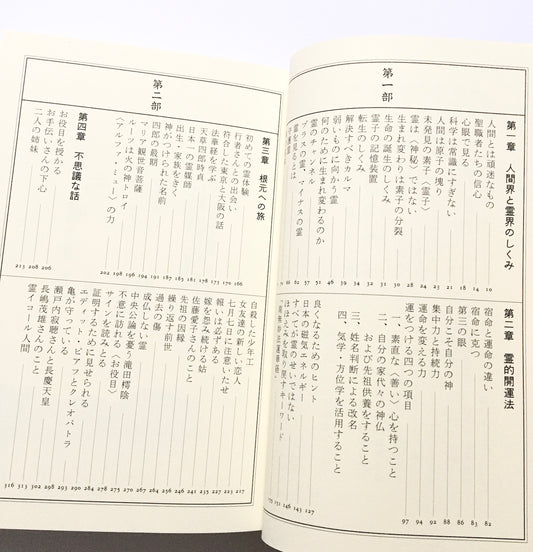 第一部
第一章 人間界と霊界のしくみ
人間とは頑迷なもの 10
聖職者たちの信心 14
心眼で見る 16
科学は常識にすぎない 18
人間は原子の塊り 21
未発見の素子〈霊子〉 24
霊は〈神秘〉ではない
生まれ変わりは素子の分裂
生命の誕生のしくみ
霊子の記憶装置
転生のしくみ
解決すべきカルマ
弱いものに向かう霊
何のために生まれ変わるのか
霊のチャンネル
プラスの霊、マイナスの霊
霊を見るとは
第二章 霊的開運法
宿命と運命の違い 82
宿命に克つ 83
第三の眼 86
自分こそ自分の神 88
集中力と持続力 91
運命を変える力 92
運をつける四つの項目 94
一、素直な〈善い〉心を持つこと 97
二、自分の家代々の神仏
および先祖供養をすること
三、姓名判断による改名
四、気学・方位学を活用すること
良くなるためのヒント 127
日本の磁気エネルギー 143
すべてが霊のせいではない 146
ほほえみを取り戻すキーワード
第二部
第三章 根元への旅
初めての霊体験 166
行者さんとの出会い 170
符合した東京と大阪の話 173
法華経を学ぶ 178
天草四郎時貞 181
日本一の霊媒師 185
出生・家族をきく 187
神がつけられた名前 191
四郎の最期 194
マリア観世音菩薩 196
ルーツは火の神トロイ 198
〈アルファ・ミュー〉の力 202
第四章 不思議な話
お役目を授かる 206
お手伝いさんの下心 208
二人の姉妹 213
自殺した少年工 217
女友達の新しい恋人 223
七月七日に注意いたせ 227
報いは必ずある 234
嫁を怨み続ける姑 236
佐藤愛子さんのこと 241
先祖の因縁 246
繰り返す前世 256
過去の傷 261
成仏しない霊 264
中央公論を憂う滝田樗陰 267
不意に訪れる〈お役目〉 278
サインを読みとる 284
証明するために見せられる 290
エディット・ピアフとクレオパトラ 293
亀が守っている 298
瀬戸内寂聴さんと長慶天皇 302
長嶋茂雄さんのこと 313
霊イコール人間 316